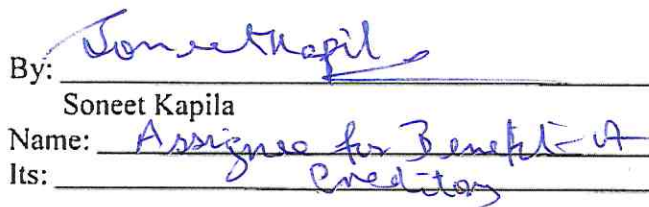 By: Soneet Kapil
Soneet Kapila
Name: Assignee for Benefit of
Its: Creditors